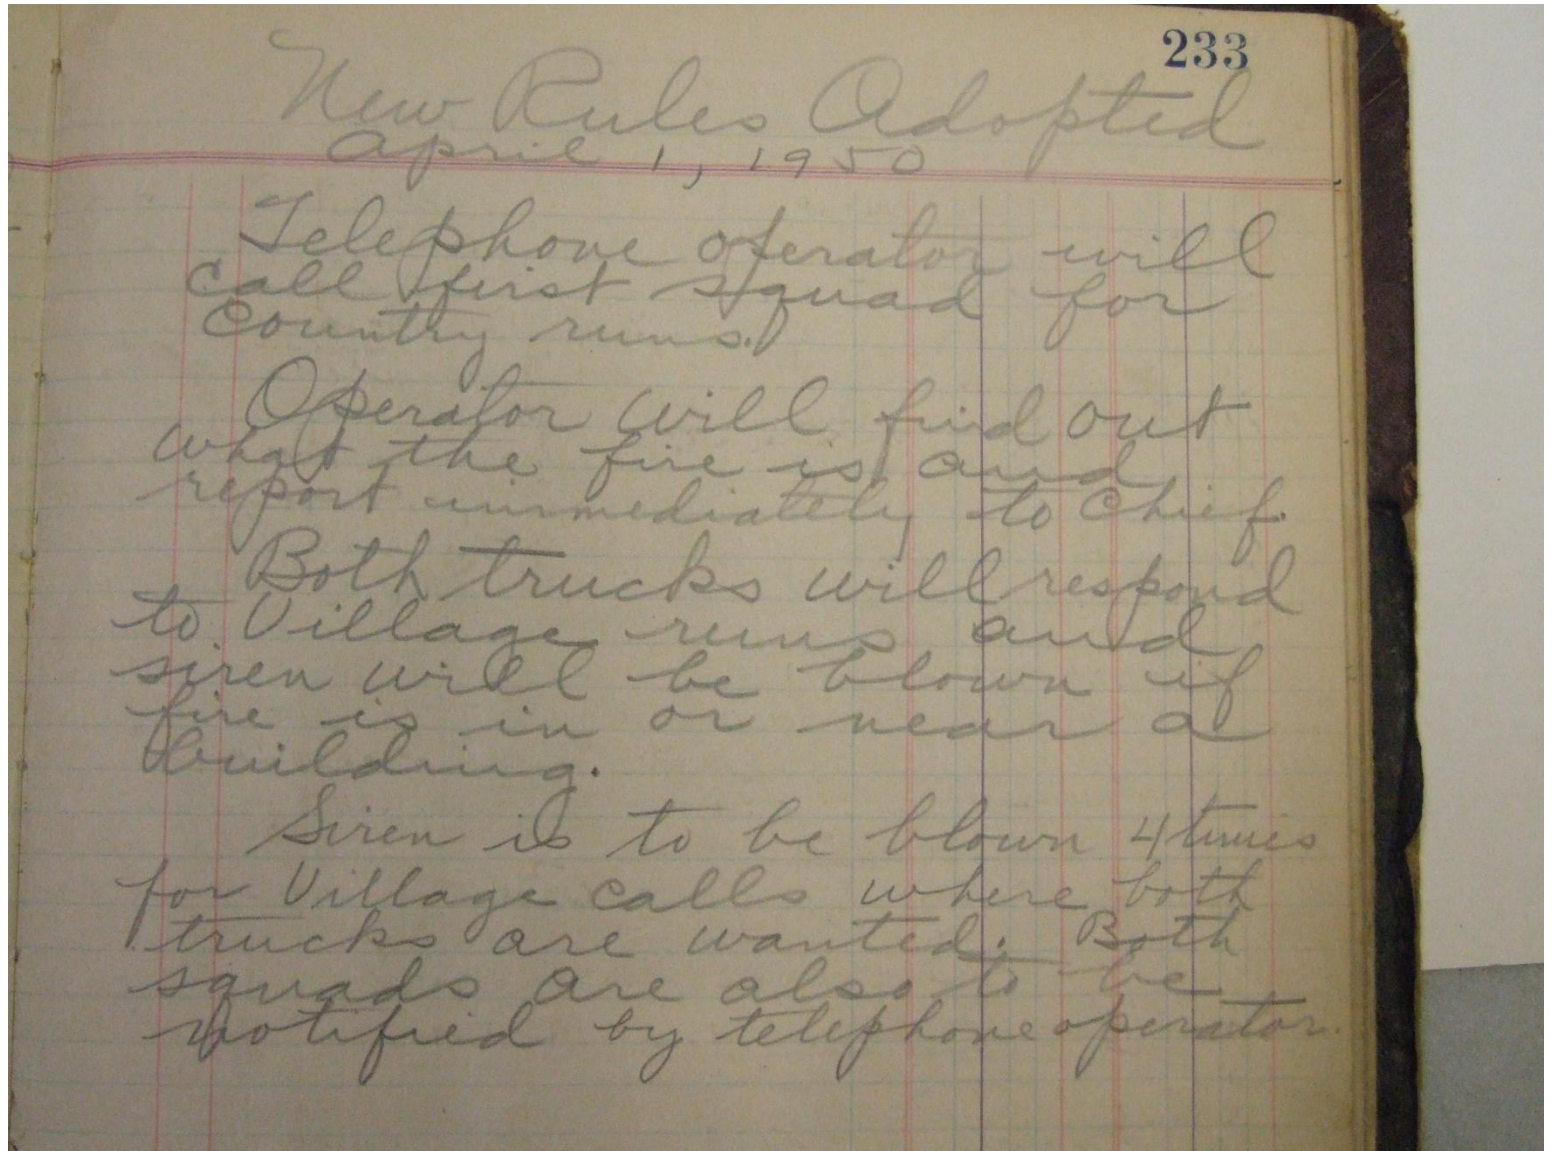 233
New Rules Adopted
April 1, 1950
Telephone operator will
call first squad for
country runs.
Operator will find out
what the fire is and
report immediately to Chief.
Both trucks will respond
to Village runs and
siren will be blown if
fire is in or near a
building.
Siren is to be blown 4 times
for Village calls where both
trucks are wanted. Both
squads are also to be
notified by telephone operator.